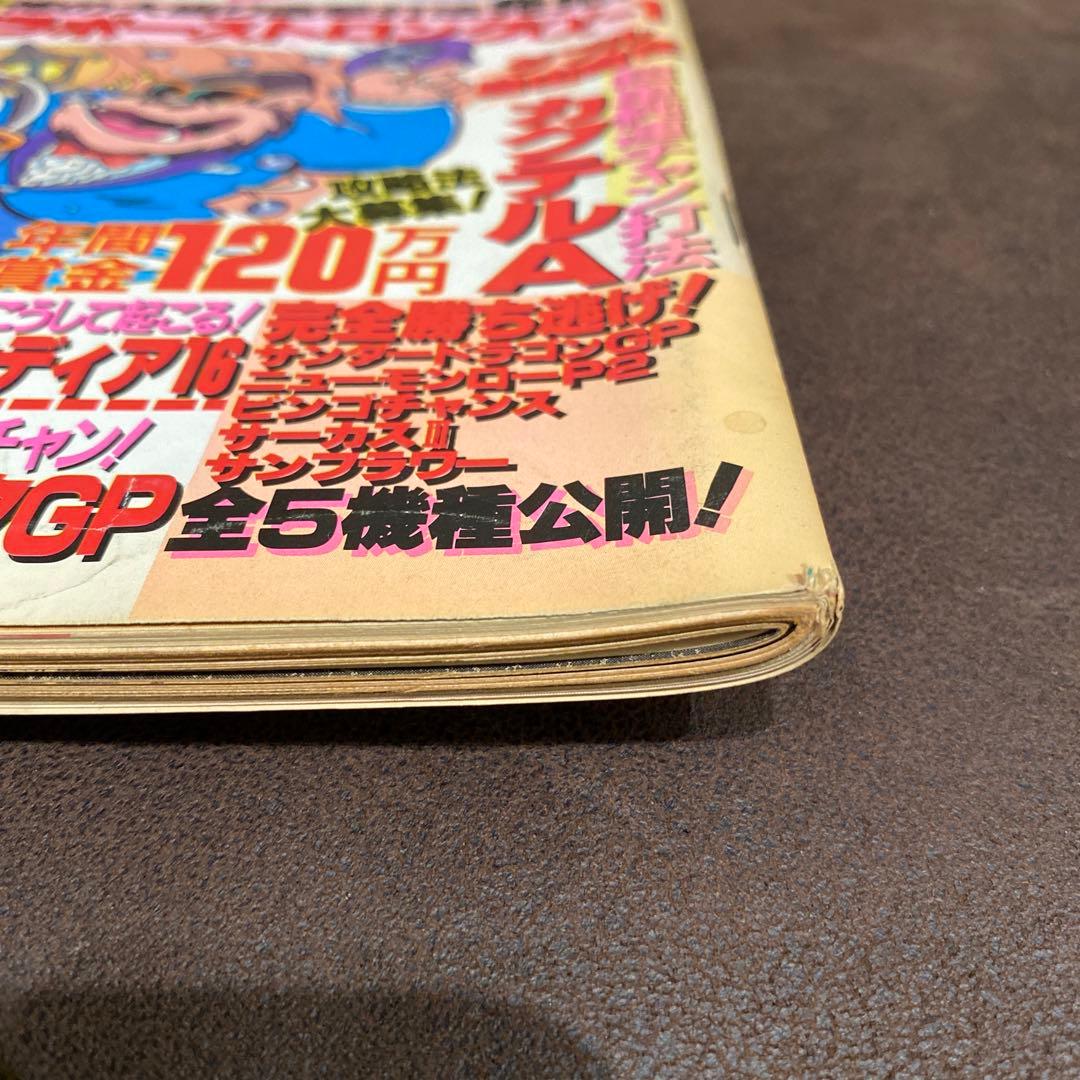 カクテルA
攻略法
大募集!
年間
賞金
120万円
こうして起こる!
ディア16
チャン!
GP
完全勝ち逃げ!
サンダードラゴンGP
ニューモンローP2
ビンゴチャンス
サーカスIII
サンフラワー
全5機種公開!